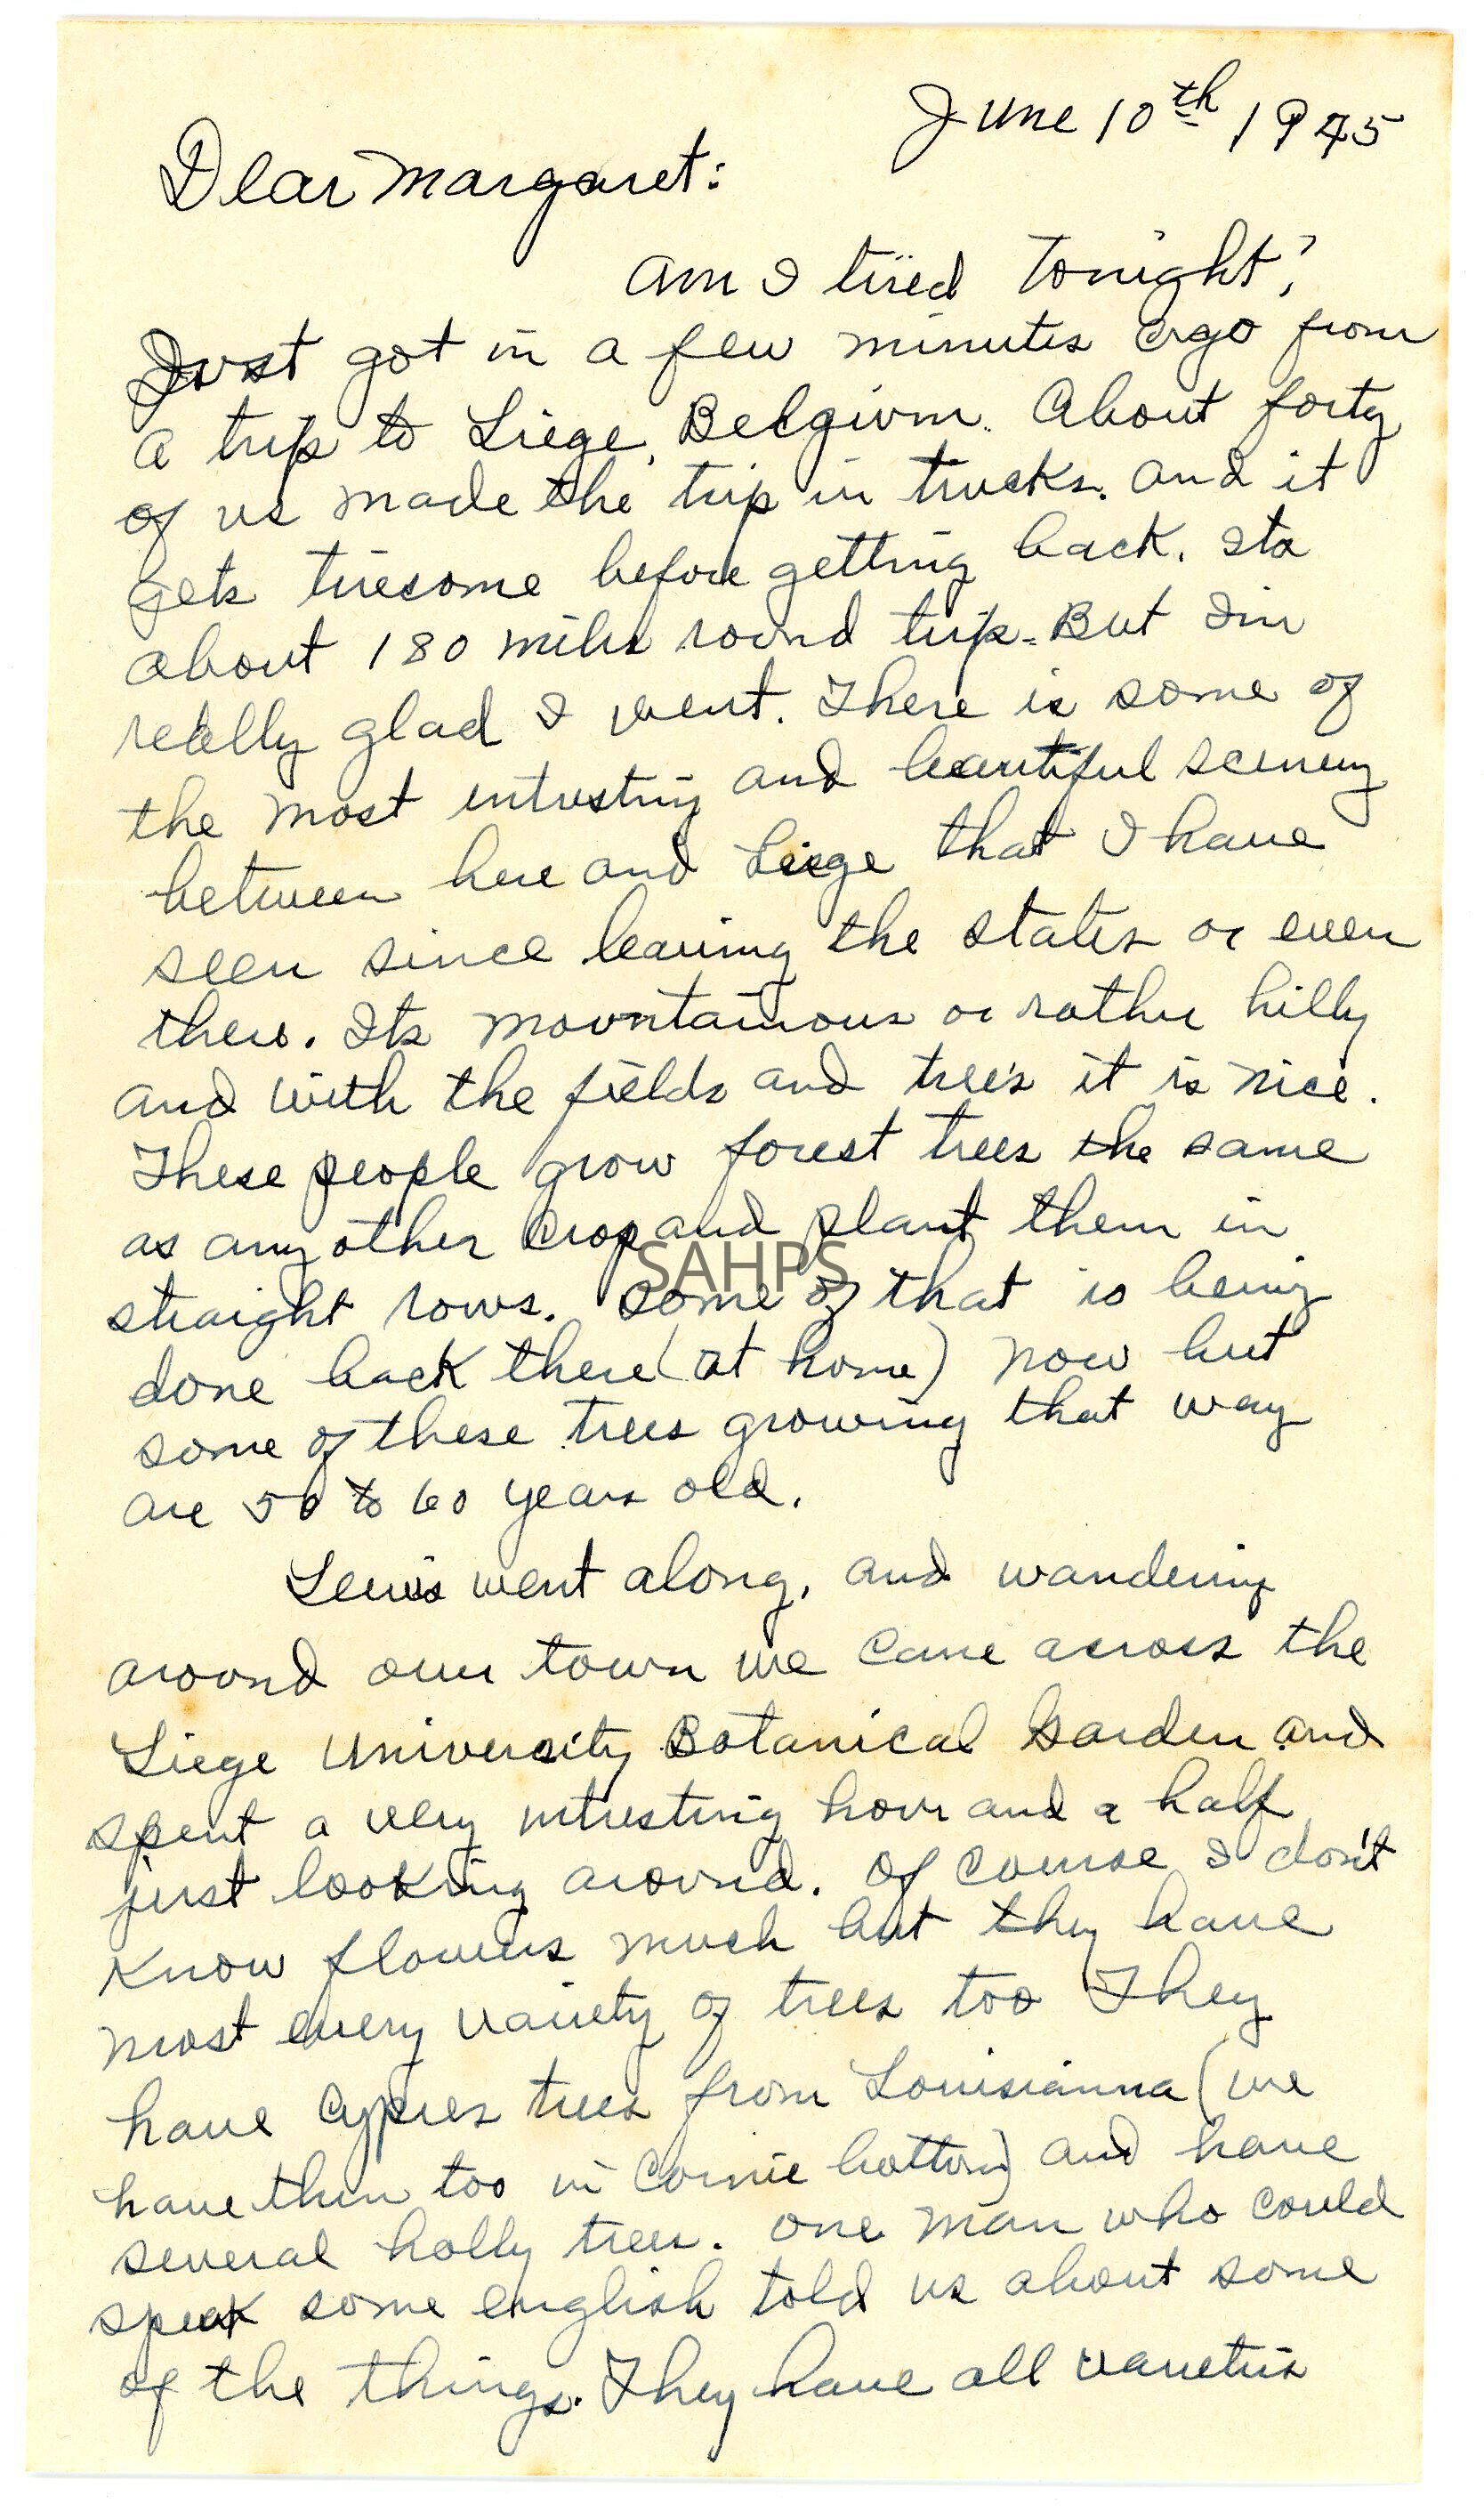 June 10th 1945
Dear Margaret:
Am I tired tonight!
Just got in a few minutes ago from
a trip to Liege, Belgium. About forty
of us made the trip in trucks. And it
gets tiresome before getting back. Its
about 180 miles round trip. But Im
really glad I went. There is some of
the most intresting and beautiful scenery
between here and Liege that I have
seen since leaving the states or even
there. Its mountainous or rather hilly
and with the fields and trees it is nice.
These people grow forest trees the same
as any other crop and plant them in
SAHPS
straight rows. Some of that is being
done back there (at home) now but
some of these trees growing that way
are 50 to 60 years old.
Lewis went along, and wandering
around over town we came across the
Liege University Botanical Garden and
spent a very intresting hour and a half
just looking around. Of course I don't
know flowers much but they have
most every variety of trees too They
have Cypres trees from Louisianna (we
have them too in Cornie bottom) and have
several holly trees. One man who could
speak some english told us about some
of the things. They have all varieties